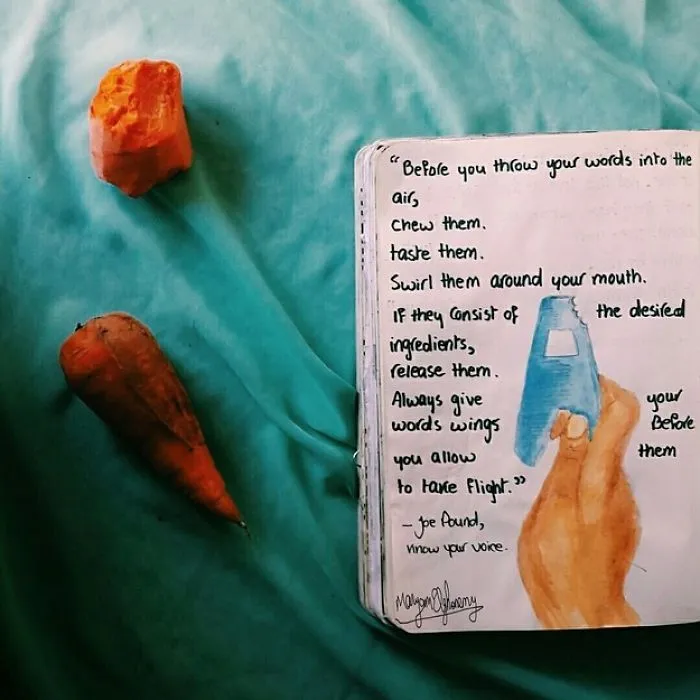 "Before you throw your words into the
air,
chew them.
taste them.
Swirl them around your mouth.
If they consist of the desired
ingredients,
release them.
Always give your
words wings Before
you allow them
to take flight."
- Joe Pound,
know your voice.